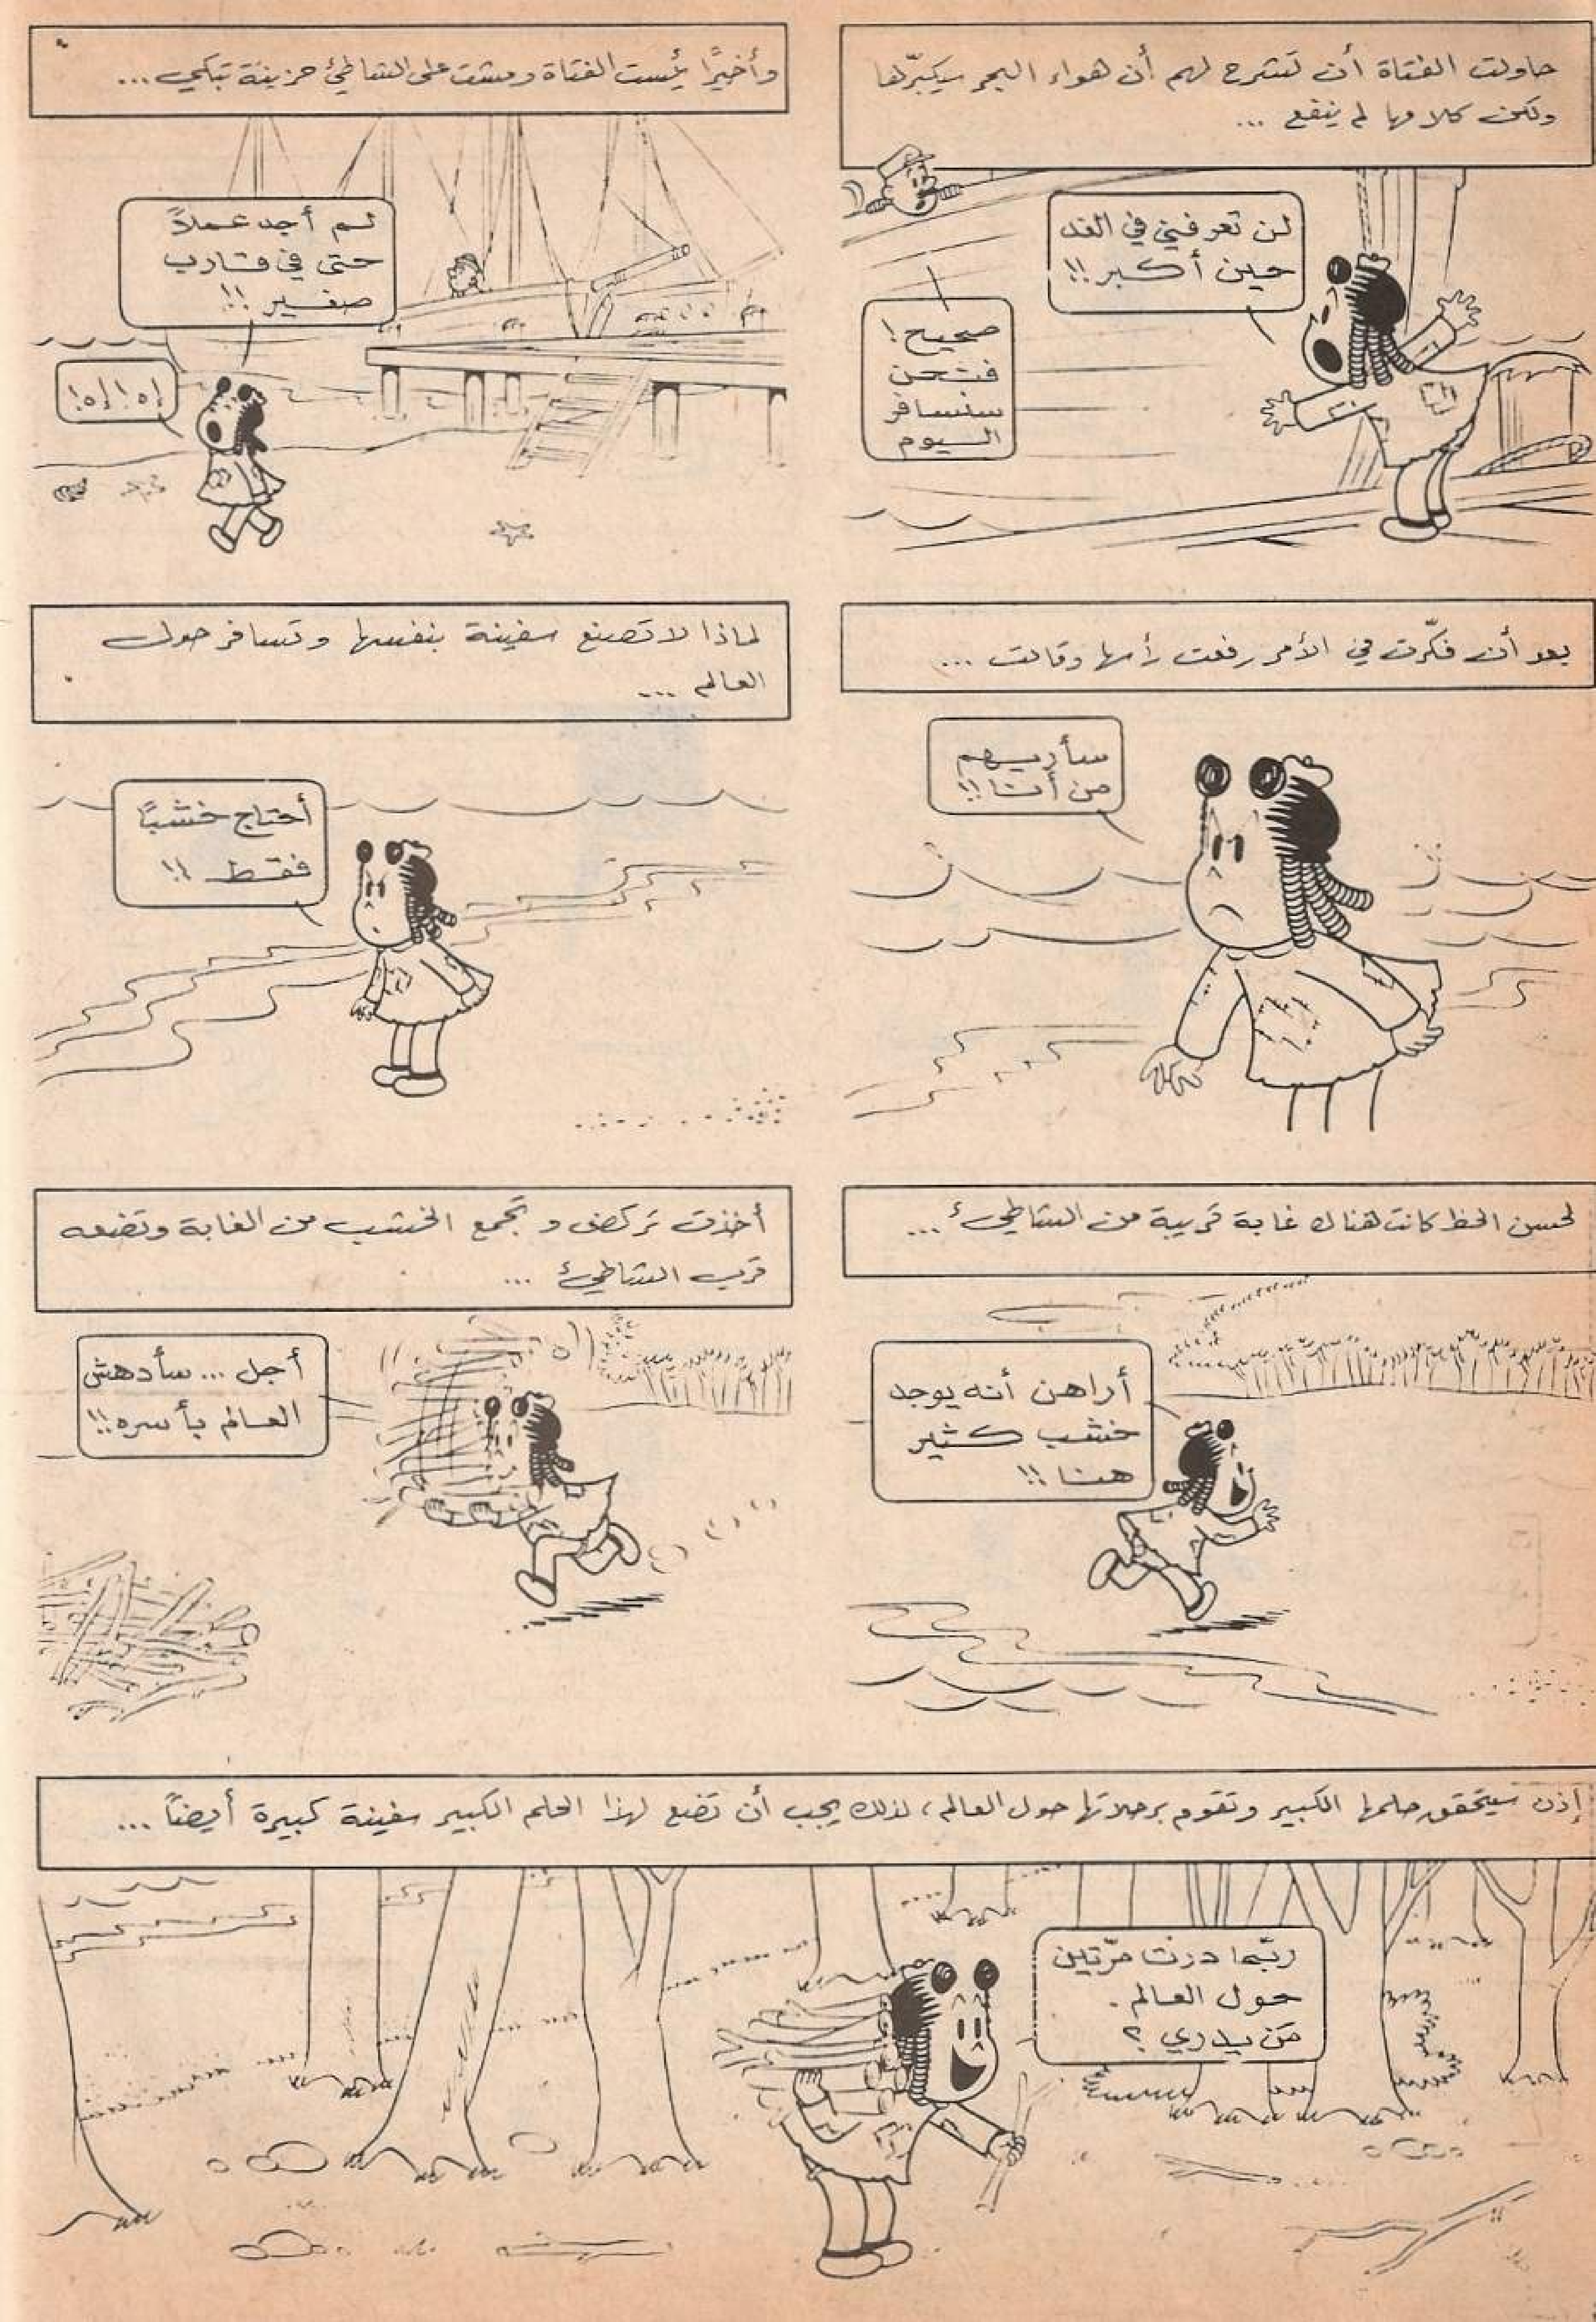 حاولت الفتاة أن تشرح لهم أن هواء البحر سيكبّرها
ولكن كلامها لم ينفع ...
لن تعرفني في الغد
حين أكبر !!
صحيح !
فنحن
سنسافر
اليوم
وأخيرًا يئست الفتاة ومشت على الشاطئ حزينة تبكي ...
لم أجد عملاً
حتى في قارب
صغير !!
إه ! إه !
بعد أن فكّرت في الأمر رفعت رأسها وقالت ...
سأريهم
من أنا !!
لماذا لا تصنع سفينة بنفسها وتسافر حول
العالم ...
أحتاج خشبًا
فقط !!
لحسن الحظ كانت هناك غابة قريبة من الشاطئ ...
أراهن أنه يوجد
خشب كثير
هنا !!
أخذت تركض و تجمع الخشب من الغابة وتضعه
قرب الشاطئ ...
أجل ... سأدهش
العالم بأسره !!
إذن سيتحقق حلمها الكبير وتقوم برحلاتها حول العالم ، لذلك يجب أن تضع لهذا الحلم الكبير سفينة كبيرة أيضاً ...
ربّما درت مرّتين
حول العالم .
من يدري ؟